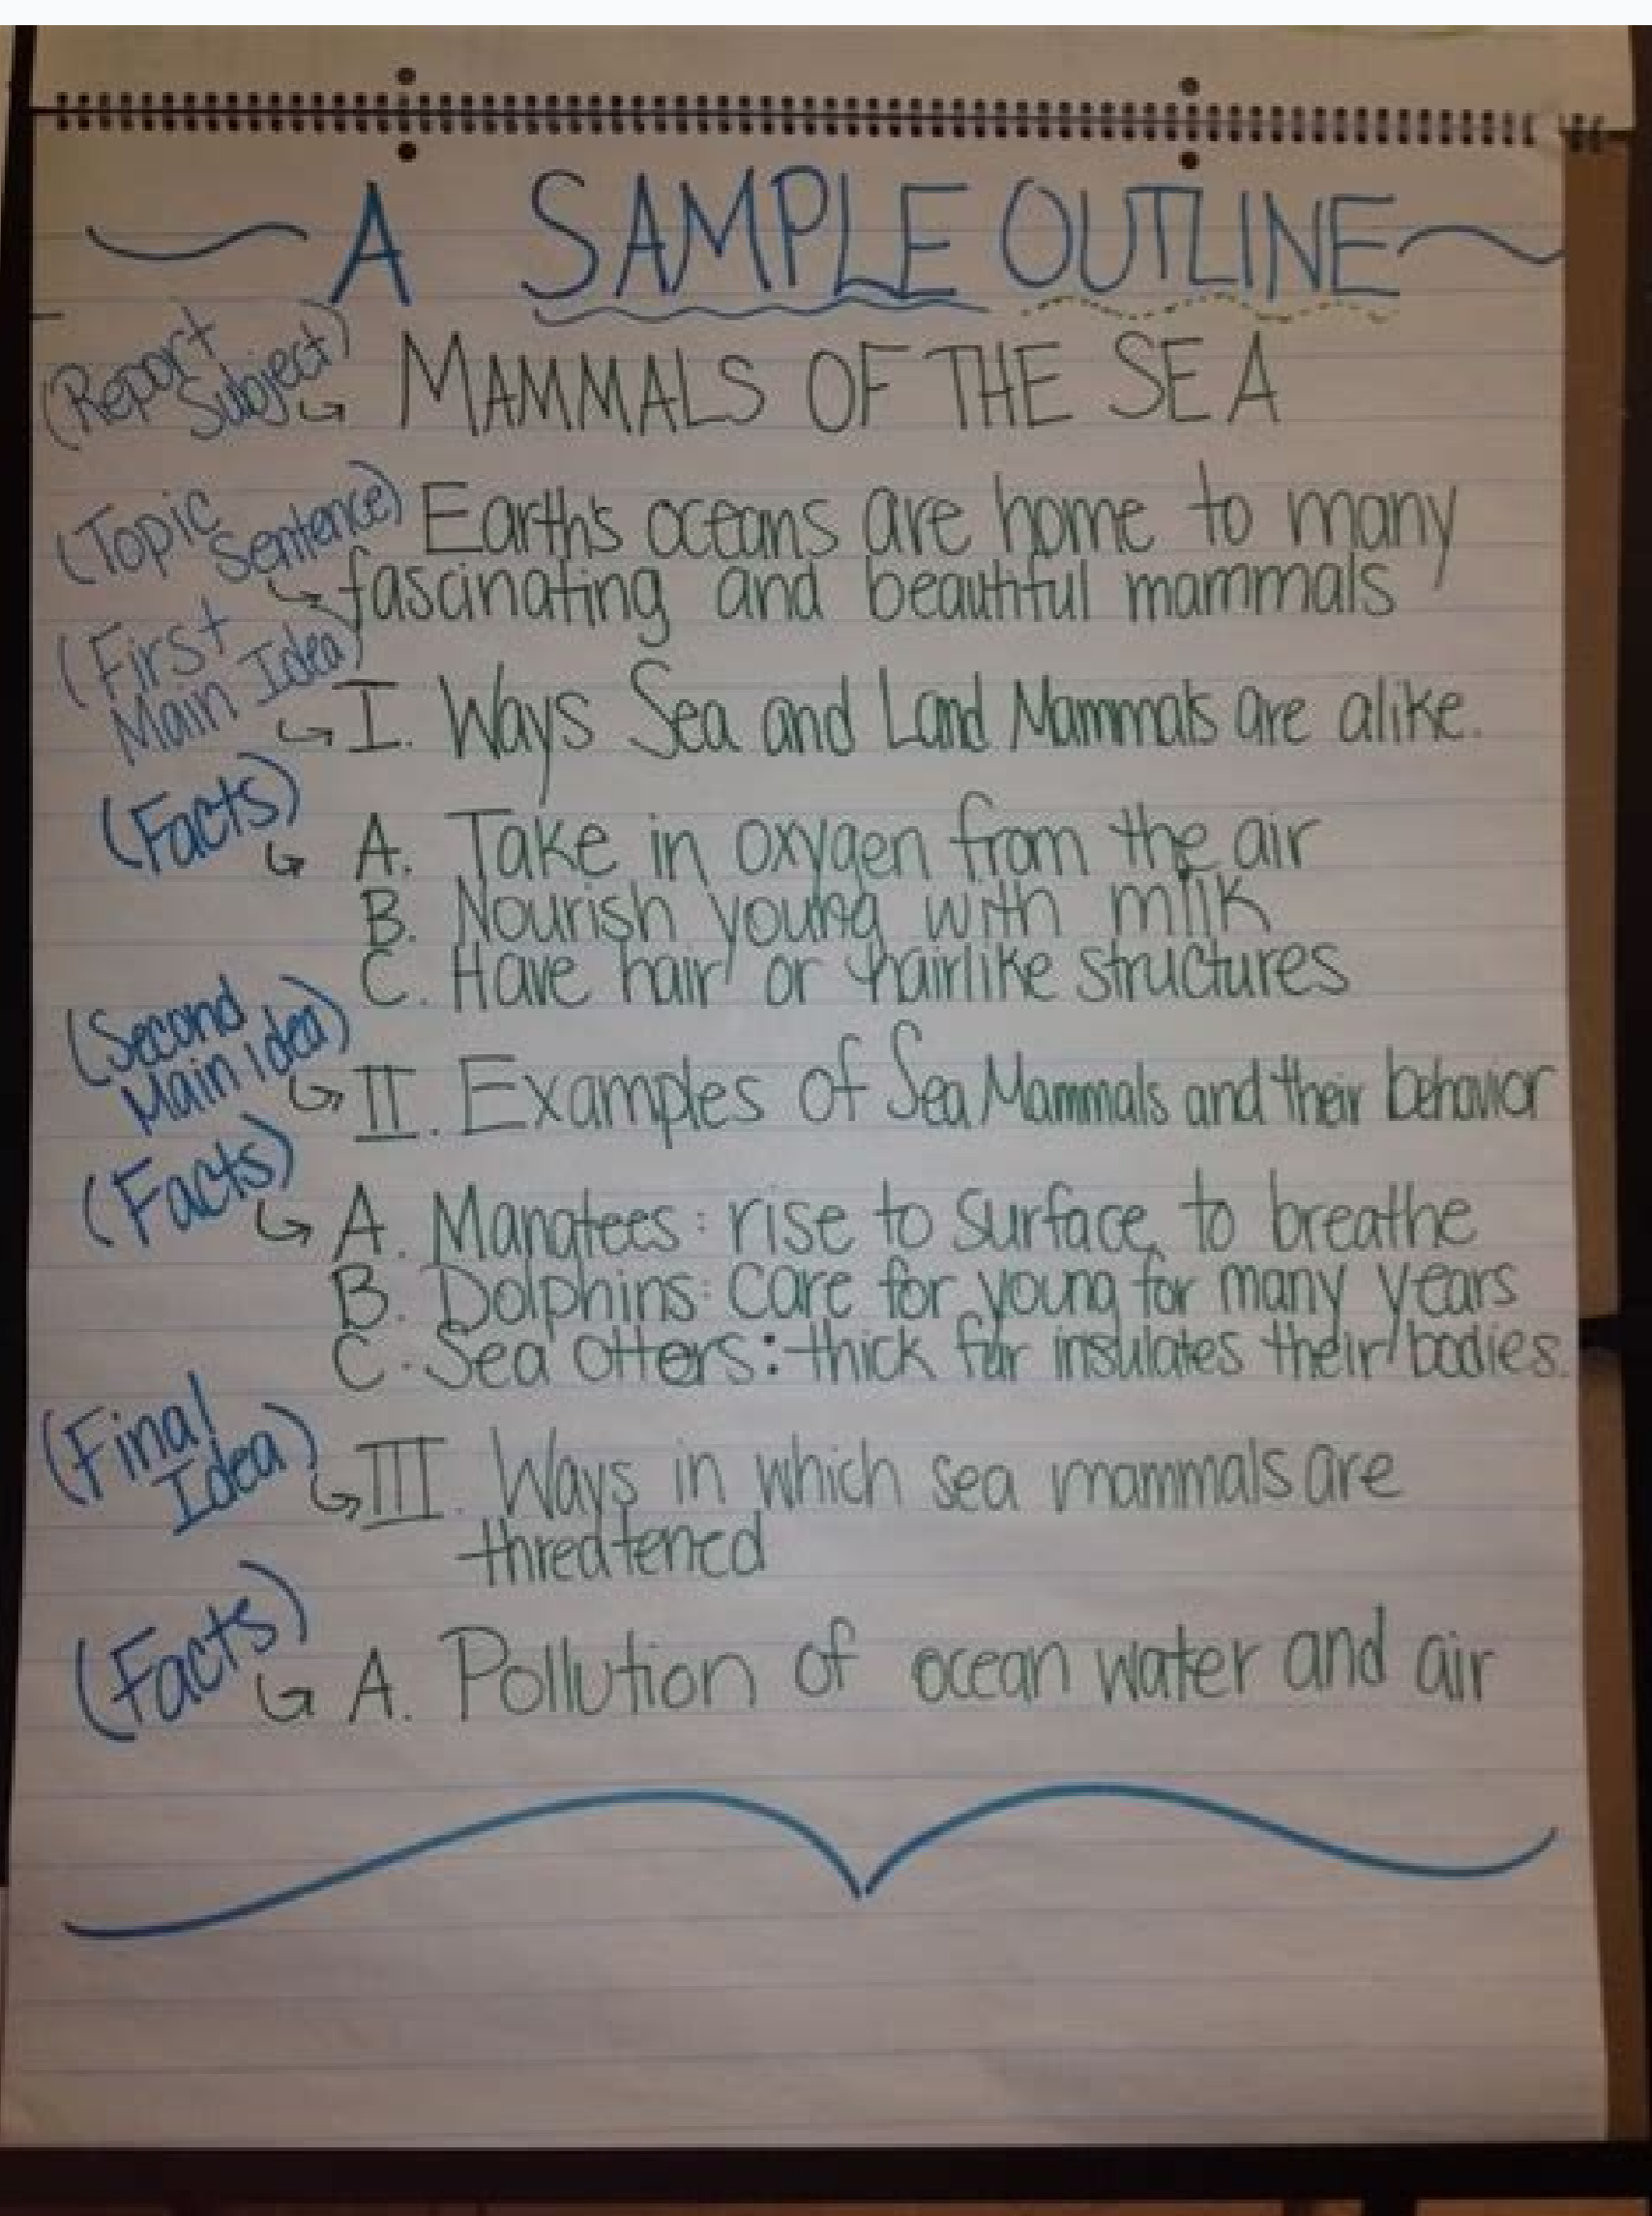 A SAMPLE OUTLINE
(Report
Subject)
MAMMALS OF THE SEA
(Topic
Sentence)
Earth's oceans are home to many
fascinating and beautiful mammals
(First
Main Idea)
I. Ways Sea and Land Mammals are alike.
(Facts)
A. Take in oxygen from the air
B. Nourish young with milk
C. Have hair or hairlike structures
(Second
Main idea)
II. Examples of Sea Mammals and their behavior
(Facts)
A. Manatees: rise to surface to breathe
B. Dolphins: care for young for many years
C. Sea Otters: thick fur insulates their bodies.
(Final
Idea)
III. Ways in which sea mammals are
threatened
(Facts)
A. Pollution of ocean water and air